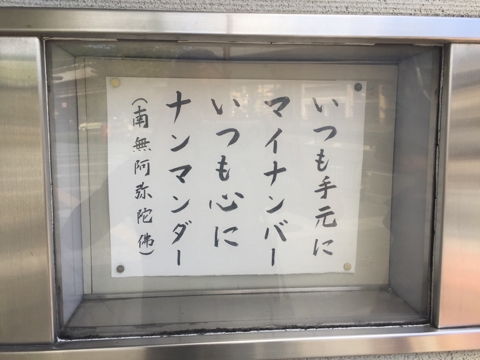 いつも手元に
マイナンバー
いつも心に
ナンマンダー
（南無阿弥陀佛）